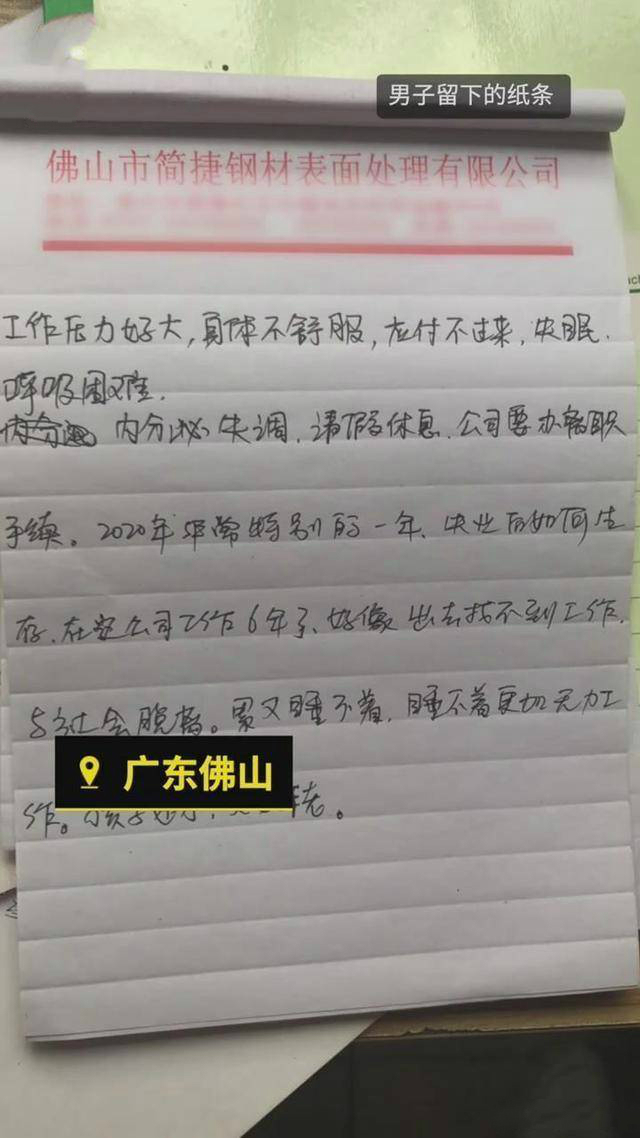 男子留下的纸条
佛山市简捷钢材表面处理有限公司
工作压力好大,身体不舒服,应付不过来,失眠.
呼吸困难.
内分泌失调.请假休息.公司要办离职
手续。2020年非常特别的一年、失业后如何生
存.在这公司工作6年了、好像出去找不到工作.
与社会脱离。累又睡不着.睡不着更加无力工
广东佛山
作。